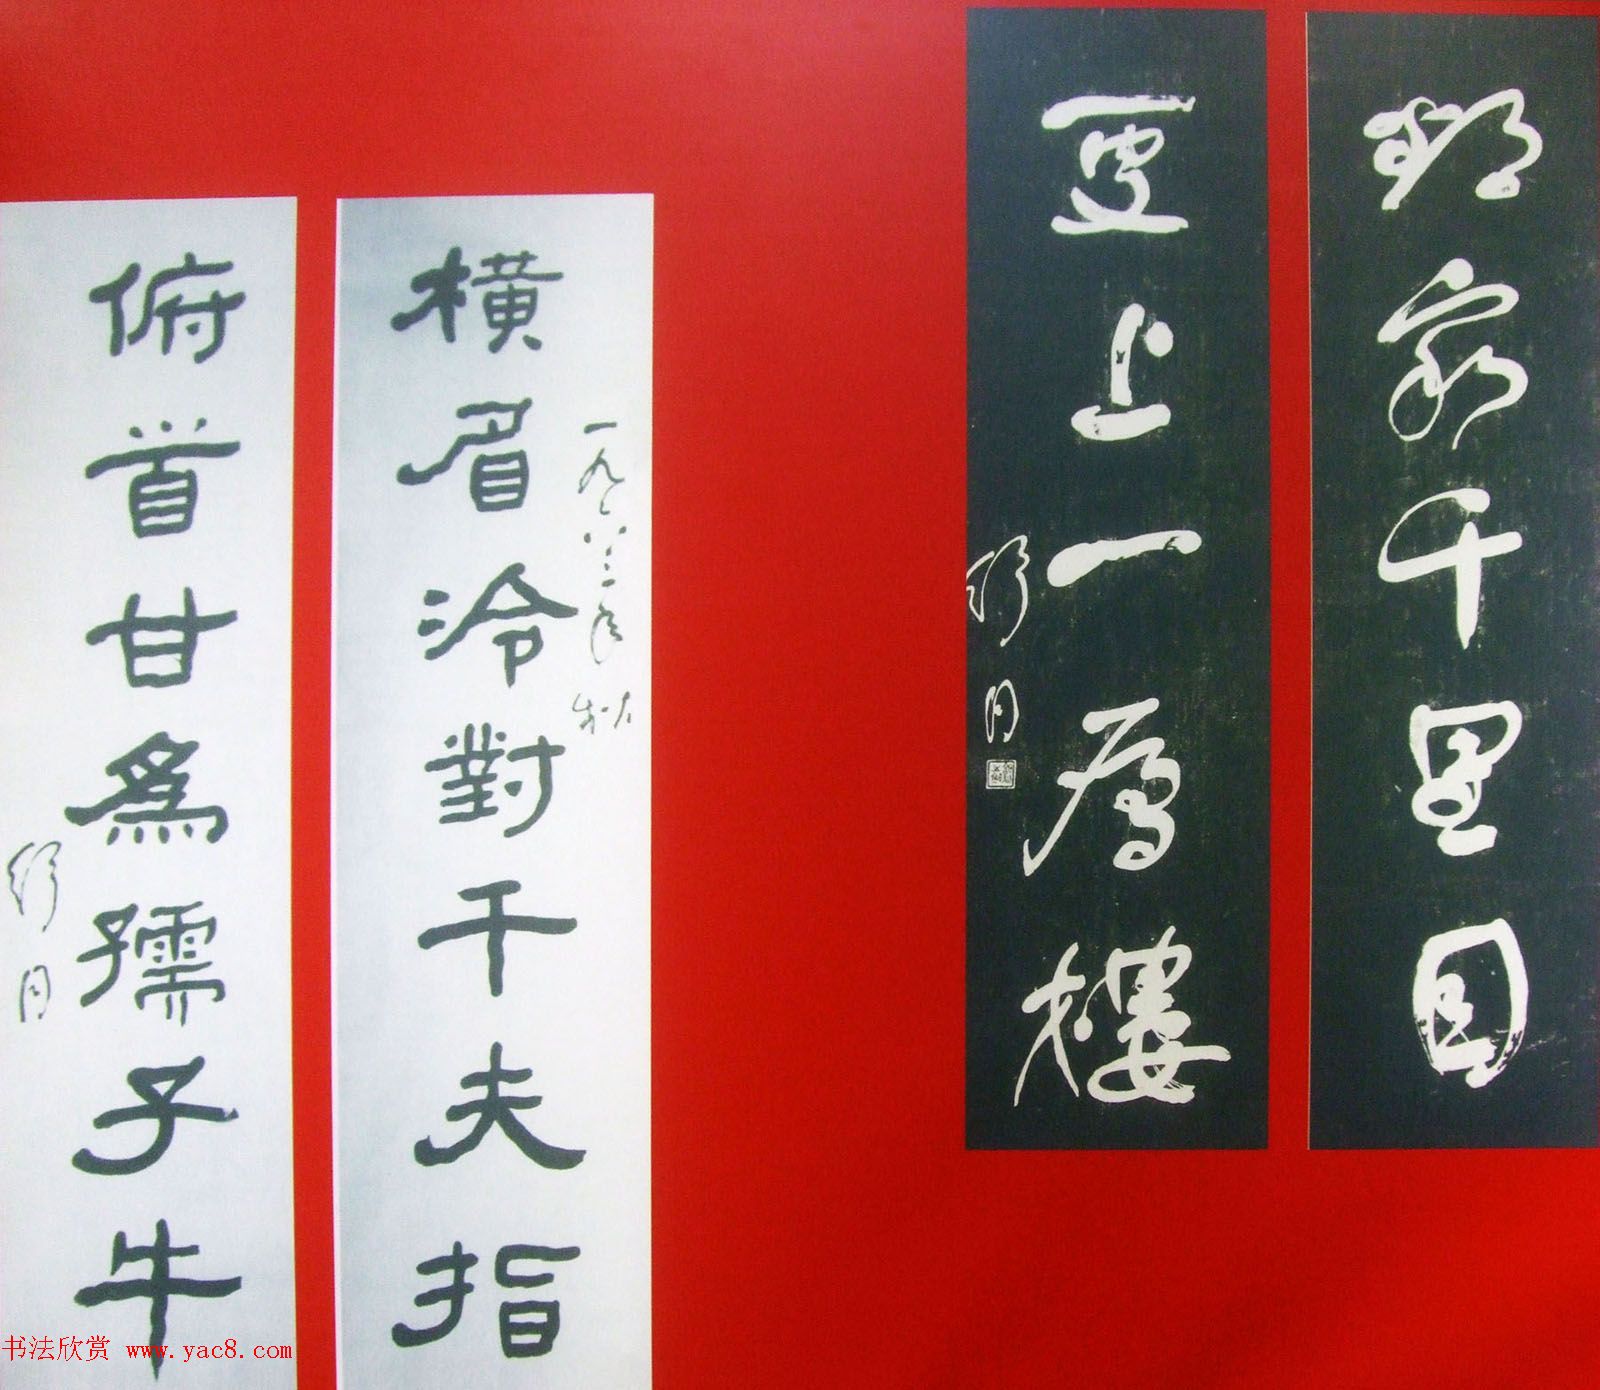 欲窮千里目
更上一層樓
舒同
一九八三年秋
橫眉冷對千夫指
俯首甘爲孺子牛
舒同
书法欣赏 www.yac8.com